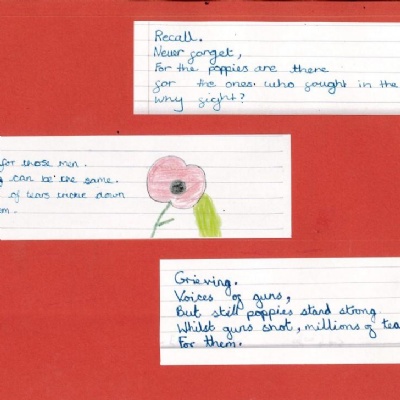 Recall.
Never forget,
For the poppies are there
for the ones who fought in the
Why fight?
for those men.
can be the same.
of tears down
Grieving.
Voices of guns,
But still poppies stand strong.
Whilst guns shot, millions of tea
For them.